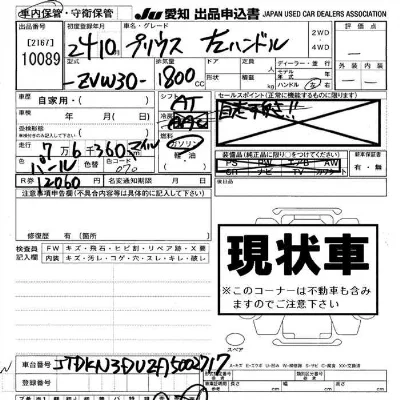 車内保管・守衛保管
JU 愛知 出品申込書 JAPAN USED CAR DEALERS ASSOCIATION
出品番号
[2167]
10089
初度登録年月
車名・グレード
2410 プリウス 左ハンドル
2WD
4WD
評価点
外 内
型式
ZVW30-
排気量
1800
CC
ドア
定員
人
ディーラー・並行
モデル
年式
ハンドル 左
車歴
自家用・( )
車検
年 月( 日)
受検形態
年 月( 日)
走行
7万6千360 マイル
シフト
AT
冷房
AAC
燃料
ガソリン
軽油
セールスポイント(正常に機能するものに限ります)
自走不可!!
装備品(純正品に限り)をつけてください
PS PW エアB AW
ナビ TV カワシート
新車保証書
有・無
パール
色替
色コード
070
R券
12060
名変期限
後日品
注意事項申告欄(不具合内容等は具体的に記入して下さい)
修復歴 有(箇所)
検査員記入欄
FW キズ・飛石・ヒビ割・リペア跡・X要
内装 キズ・汚レ・コゲ・穴・スレ・キレ・破レ
現状車
※このコーナーは不動車も含み
ますのでご注意下さい
スペア
車台番号
JTDKN3DU2A5002717
登録番号
諸元
類別区分番号
長さ
cm
幅
cm
高さ
cm